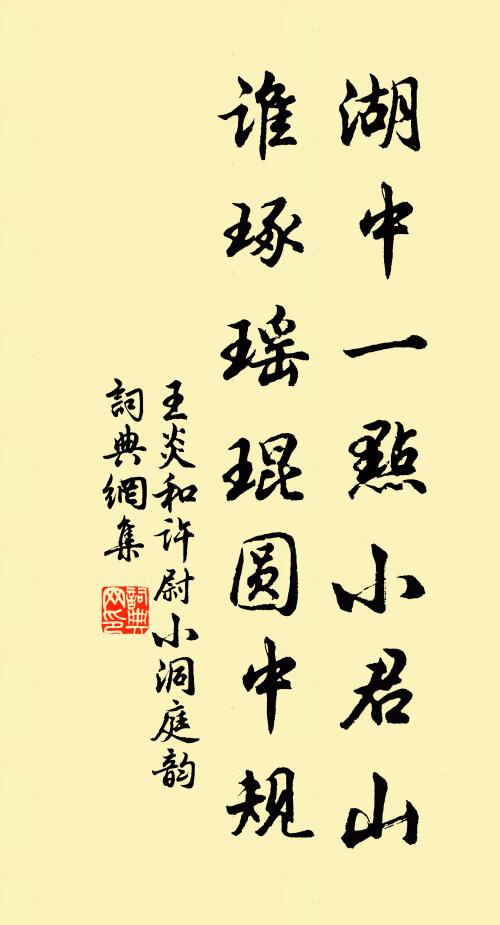 湖中一點小君山
谁琢瑶琨圆中规
王炎和许尉小洞庭韵
詞典網集
詞典网印